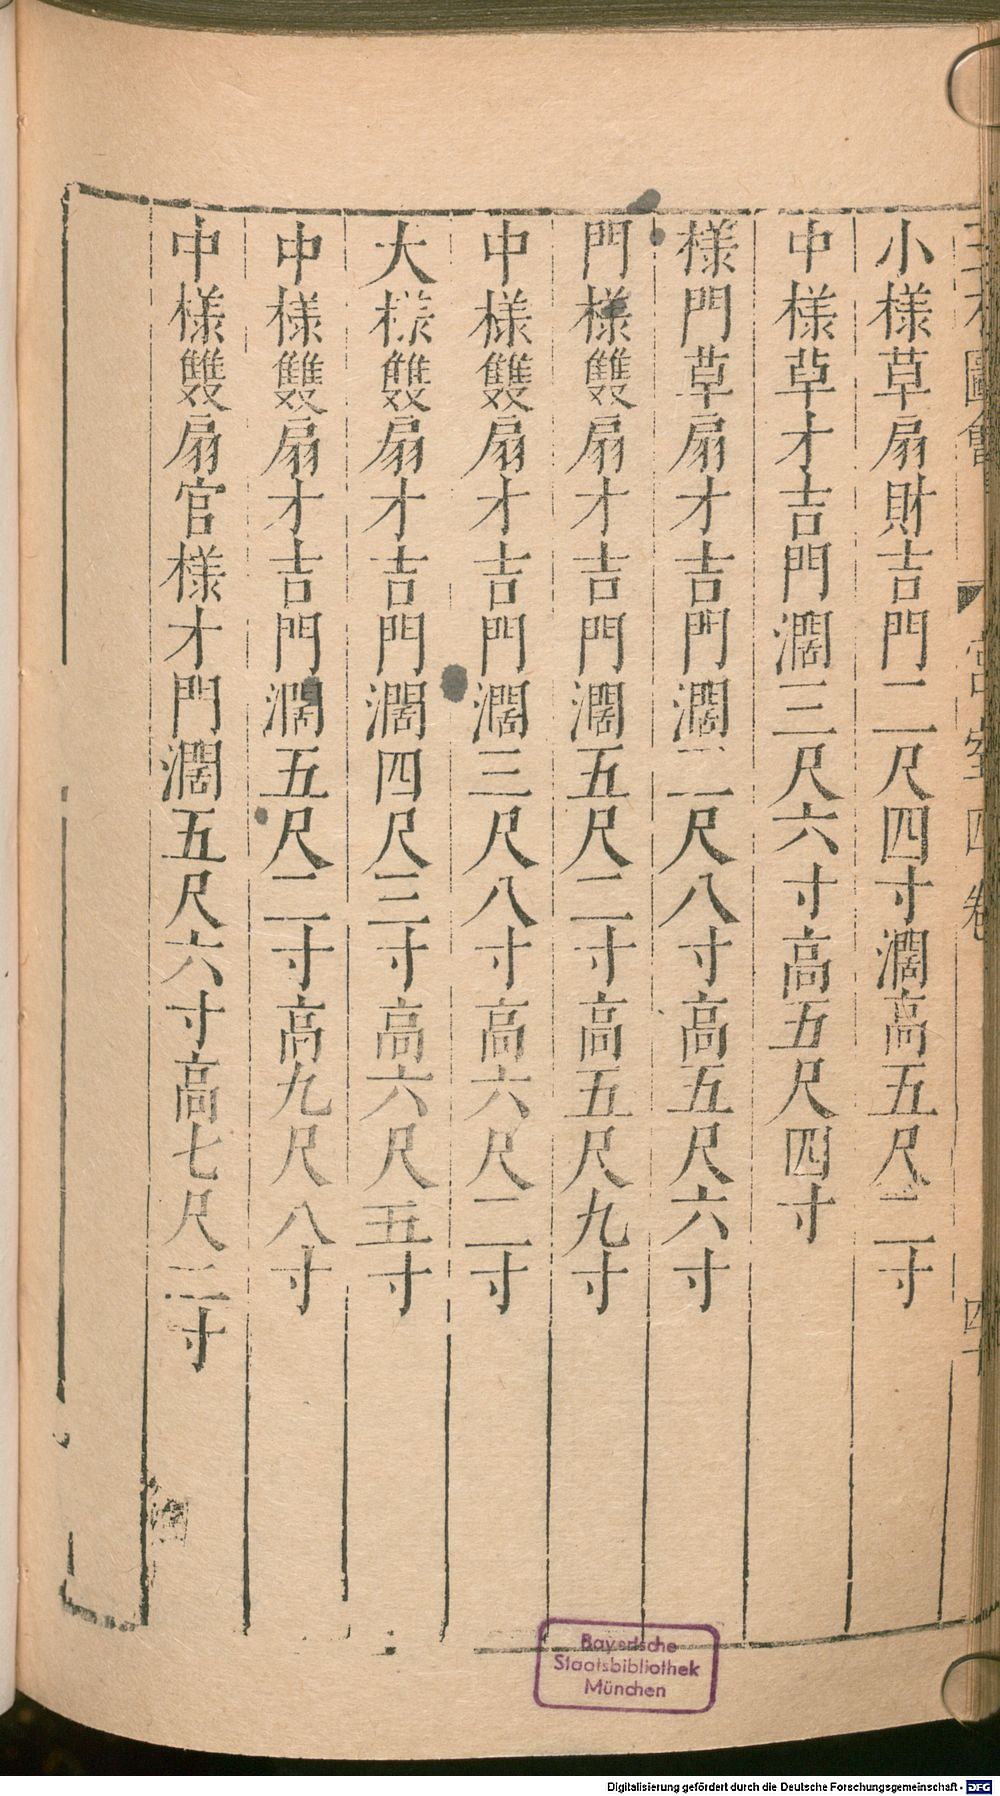 三才圖會 宮室四卷 四十
小樣草扇財吉門二尺四寸濶高五尺二寸
中樣草才吉門濶三尺六寸高五尺四寸
樣門草扇才吉門濶二尺八寸高五尺六寸
門樣雙扇才吉門濶五尺二寸高五尺九寸
中樣雙扇才吉門濶三尺八寸高六尺二寸
大樣雙扇才吉門濶四尺三寸高六尺五寸
中樣雙扇才吉門濶五尺二寸高九尺八寸
中樣雙扇官樣才門濶五尺六寸高七尺二寸
Bayerische
Staatsbibliothek
München
Digitalisierung gefördert durch die Deutsche Forschungsgemeinschaft - DFG